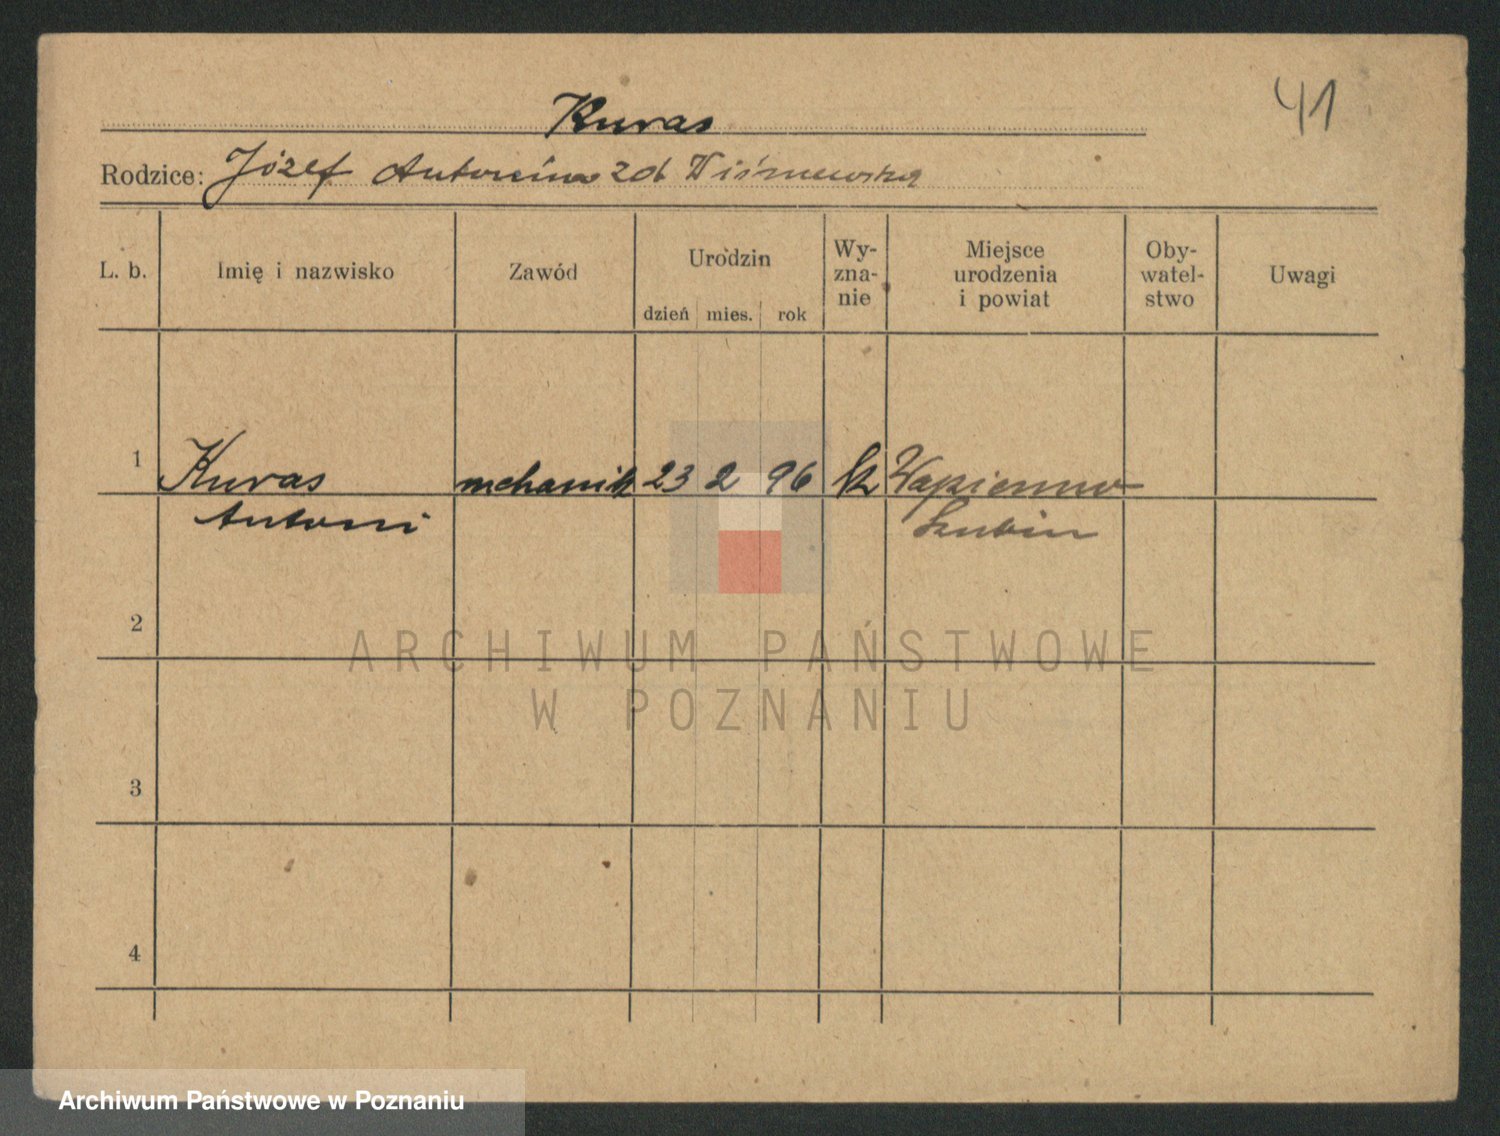 41
Kuras
Rodzice: Józef Antonina zd Wiśniewska
L. b. Imię i nazwisko Zawód Urodzin dzień mies. rok Wy-
zna-
nie Miejsce
urodzenia
i powiat Oby-
watel-
stwo Uwagi
1 Kuras mchanik 23 2 96 k Wapienno
Antoni Szubin
2
3
4
ARCHIWUM PAŃSTWOWE
W POZNANIU
Archiwum Państwowe w Poznaniu